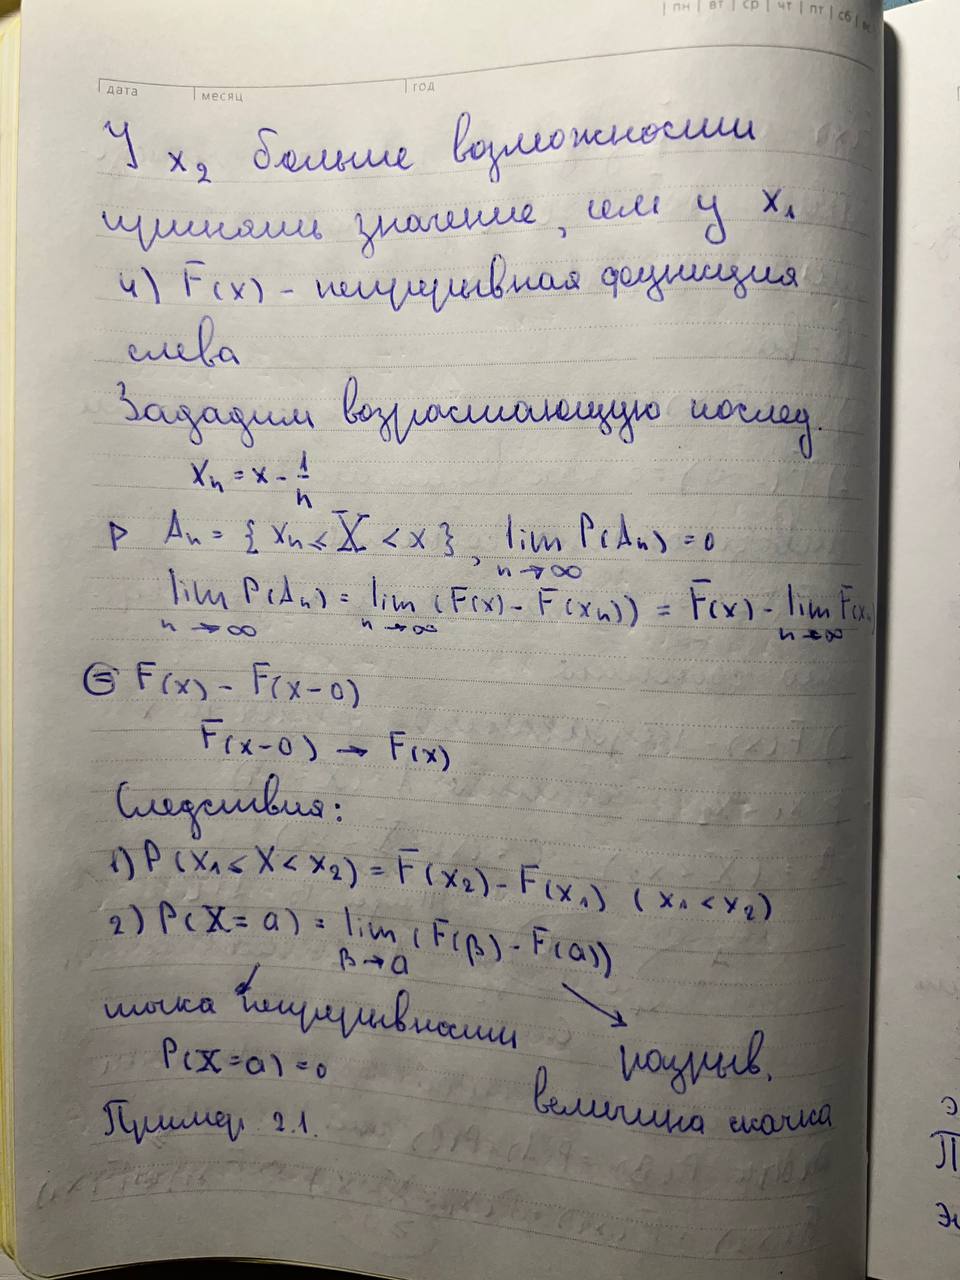 пн вт ср чт пт сб вс
дата месяц год
У x₂ больше возможности
принять значение, чем у x₁
4) F(x) - непрерывная функция
слева
Зададим возрастающую послед.
xₙ = x - 1/n
р Aₙ = {xₙ ≤ X < x}, lim n→∞ P(Aₙ) = 0
lim n→∞ P(Aₙ) = lim n→∞ (F(x) - F(xₙ)) = F(x) - lim n→∞ F(xₙ)
⊜ F(x) - F(x-0)
F(x-0) → F(x)
Следствия:
1) P(x₁ ≤ X < x₂) = F(x₂) - F(x₁) (x₁ < x₂)
2) P(X = a) = lim β→a (F(β) - F(a))
точка непрерывности
разрыв,
P(X=a) = 0
величина скачка
Пример 2.1.